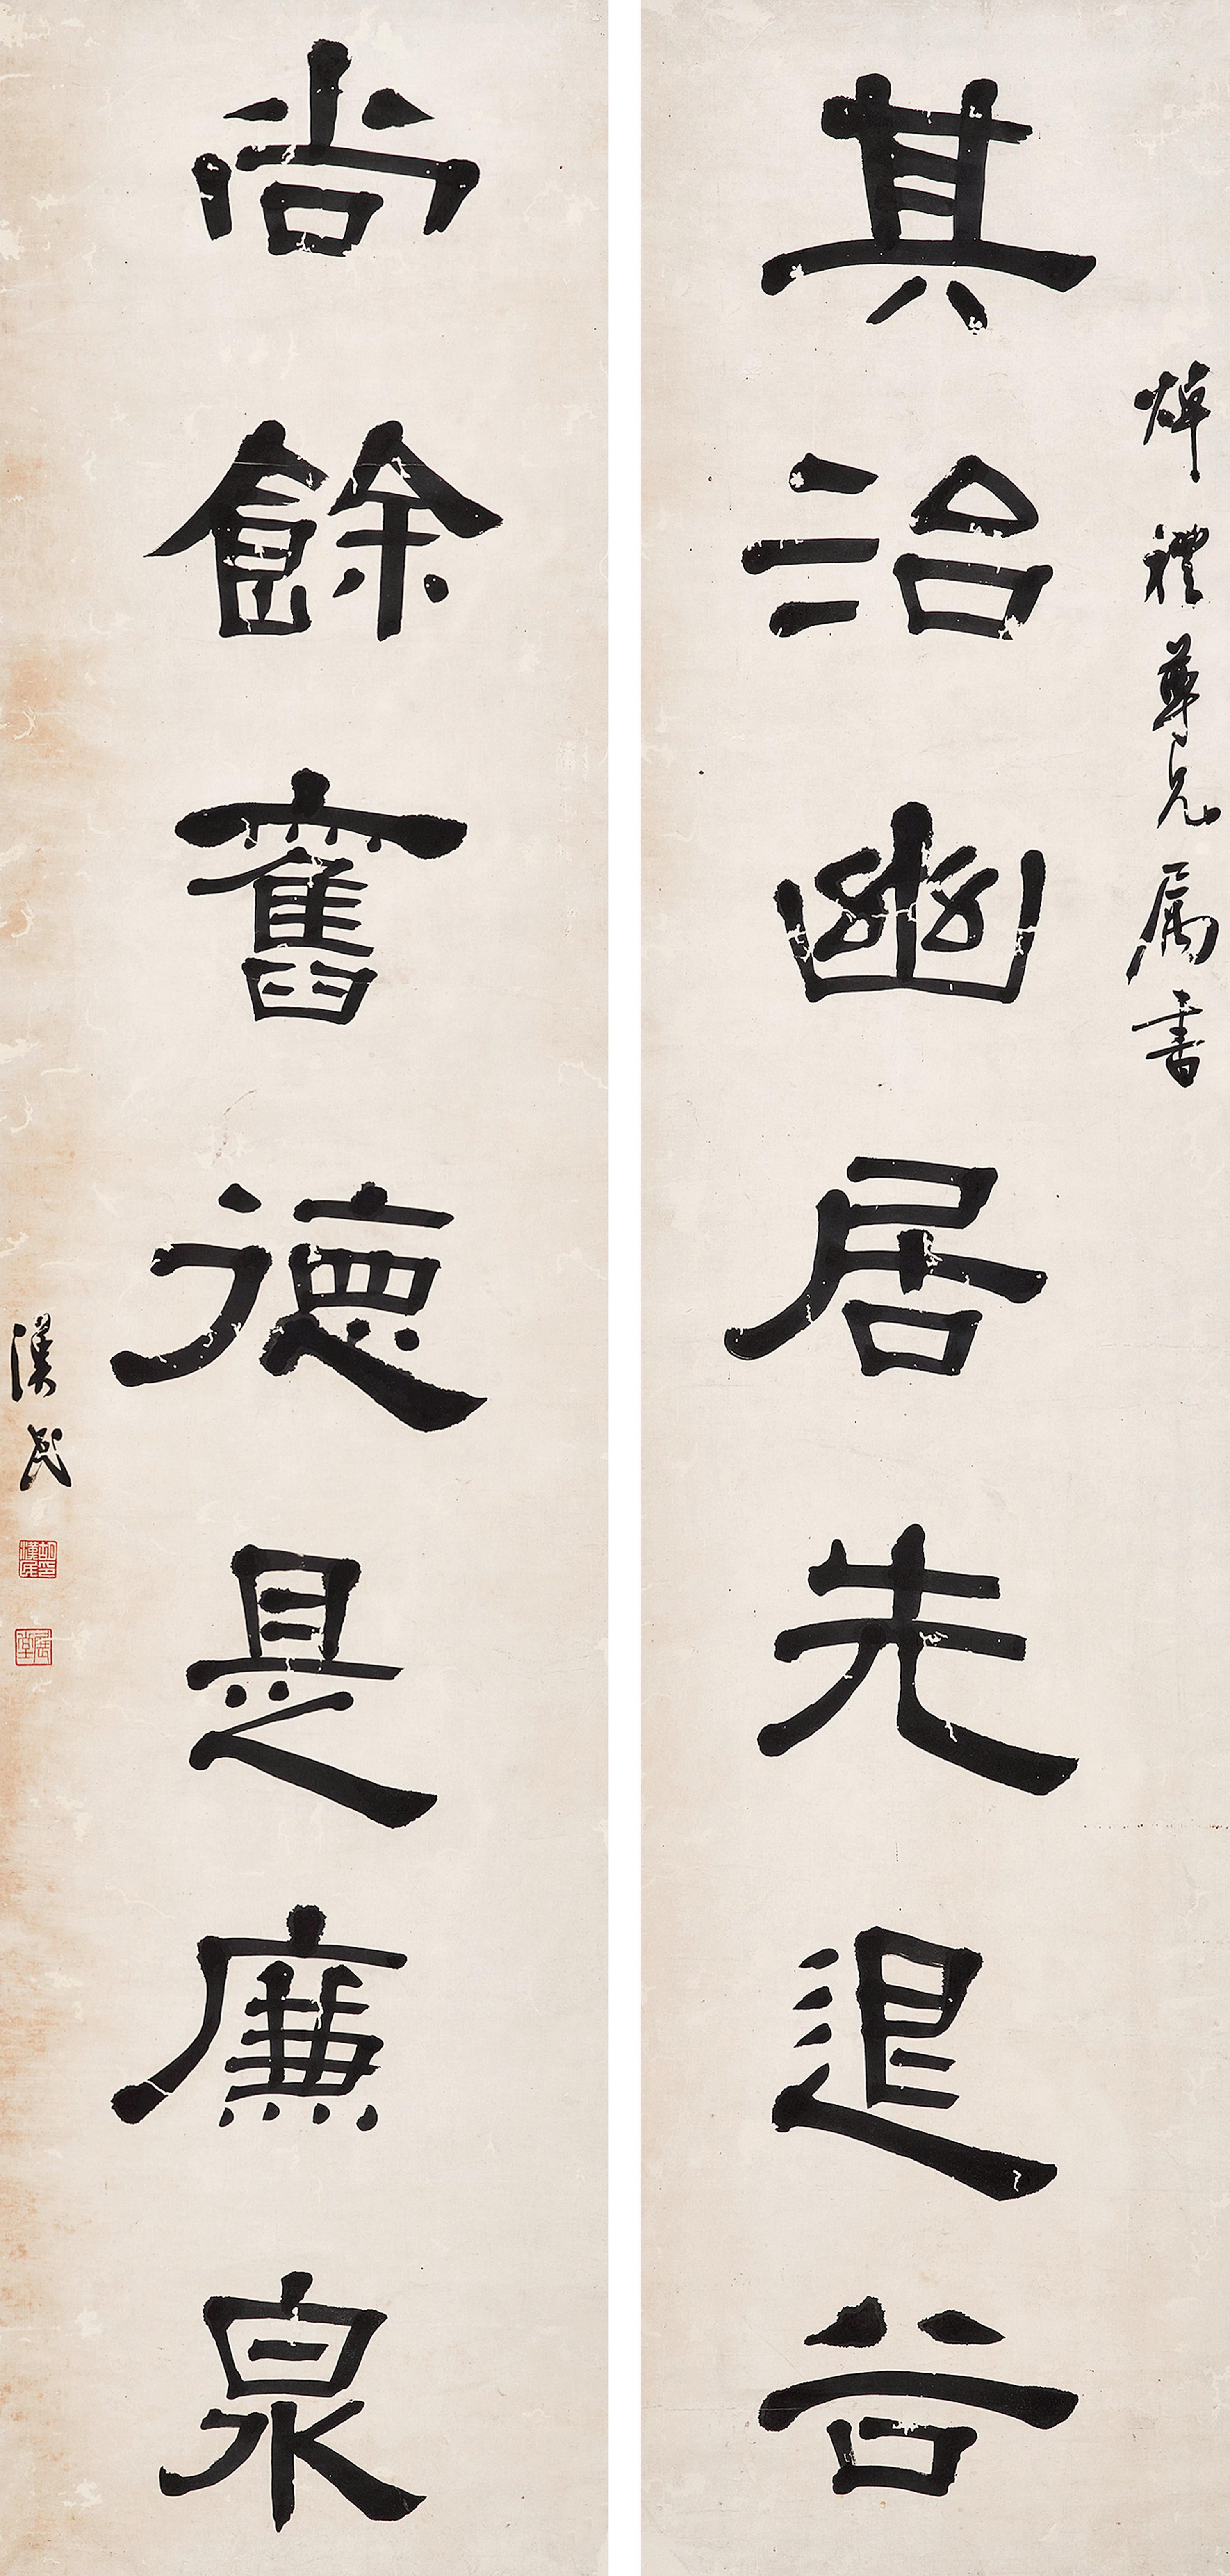 焯禮尊兄属書
其治幽居先退谷
尚餘舊德是廉泉
漢民
胡漢民印
展堂